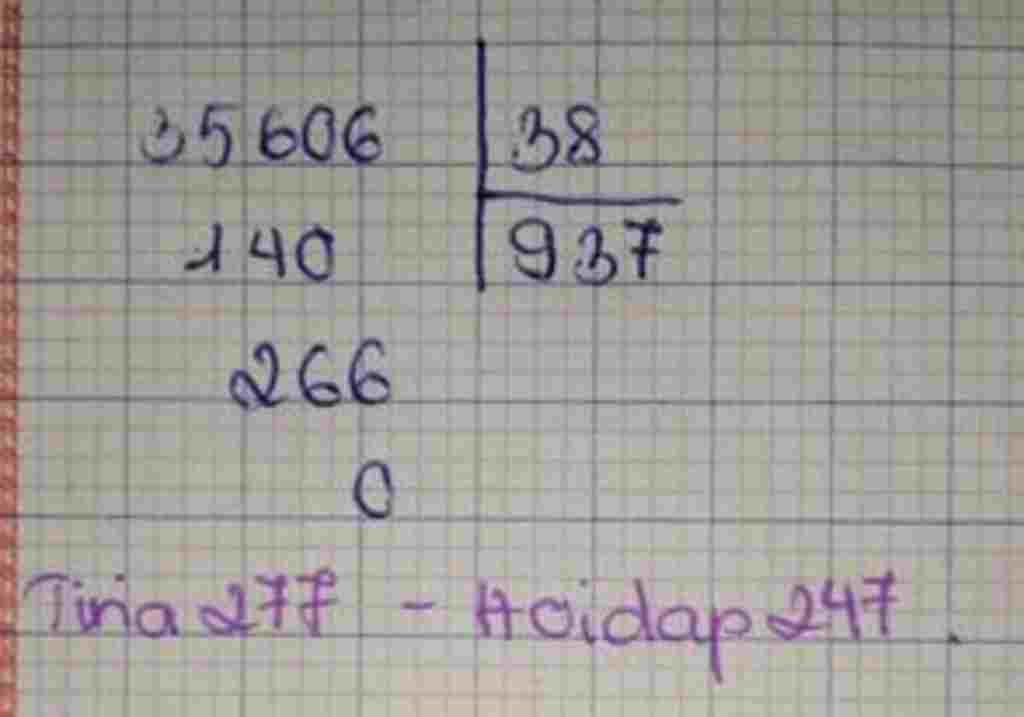 35606 38
140 937
266
0
Tina277 - Hoidap247.